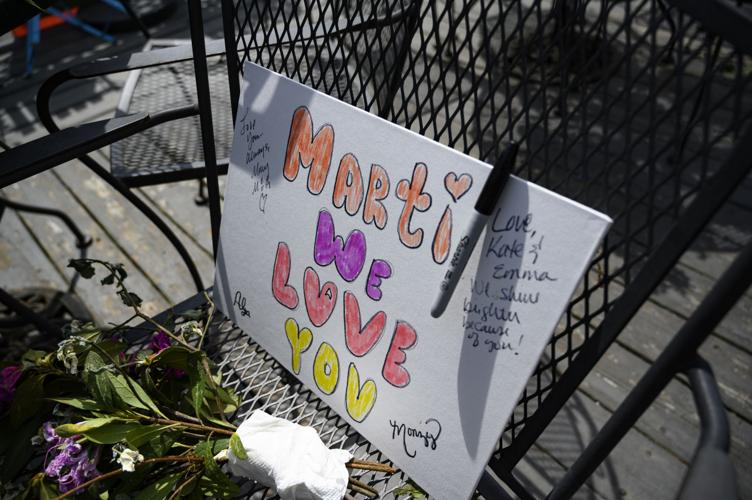 Love
you
always,
Mary
MARTi
WE
LOVE
YOU
Love,
Kate &
Emma
We shine
brighter
because
of you!